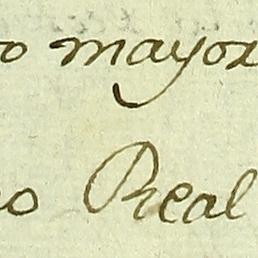 o mayor
o Real